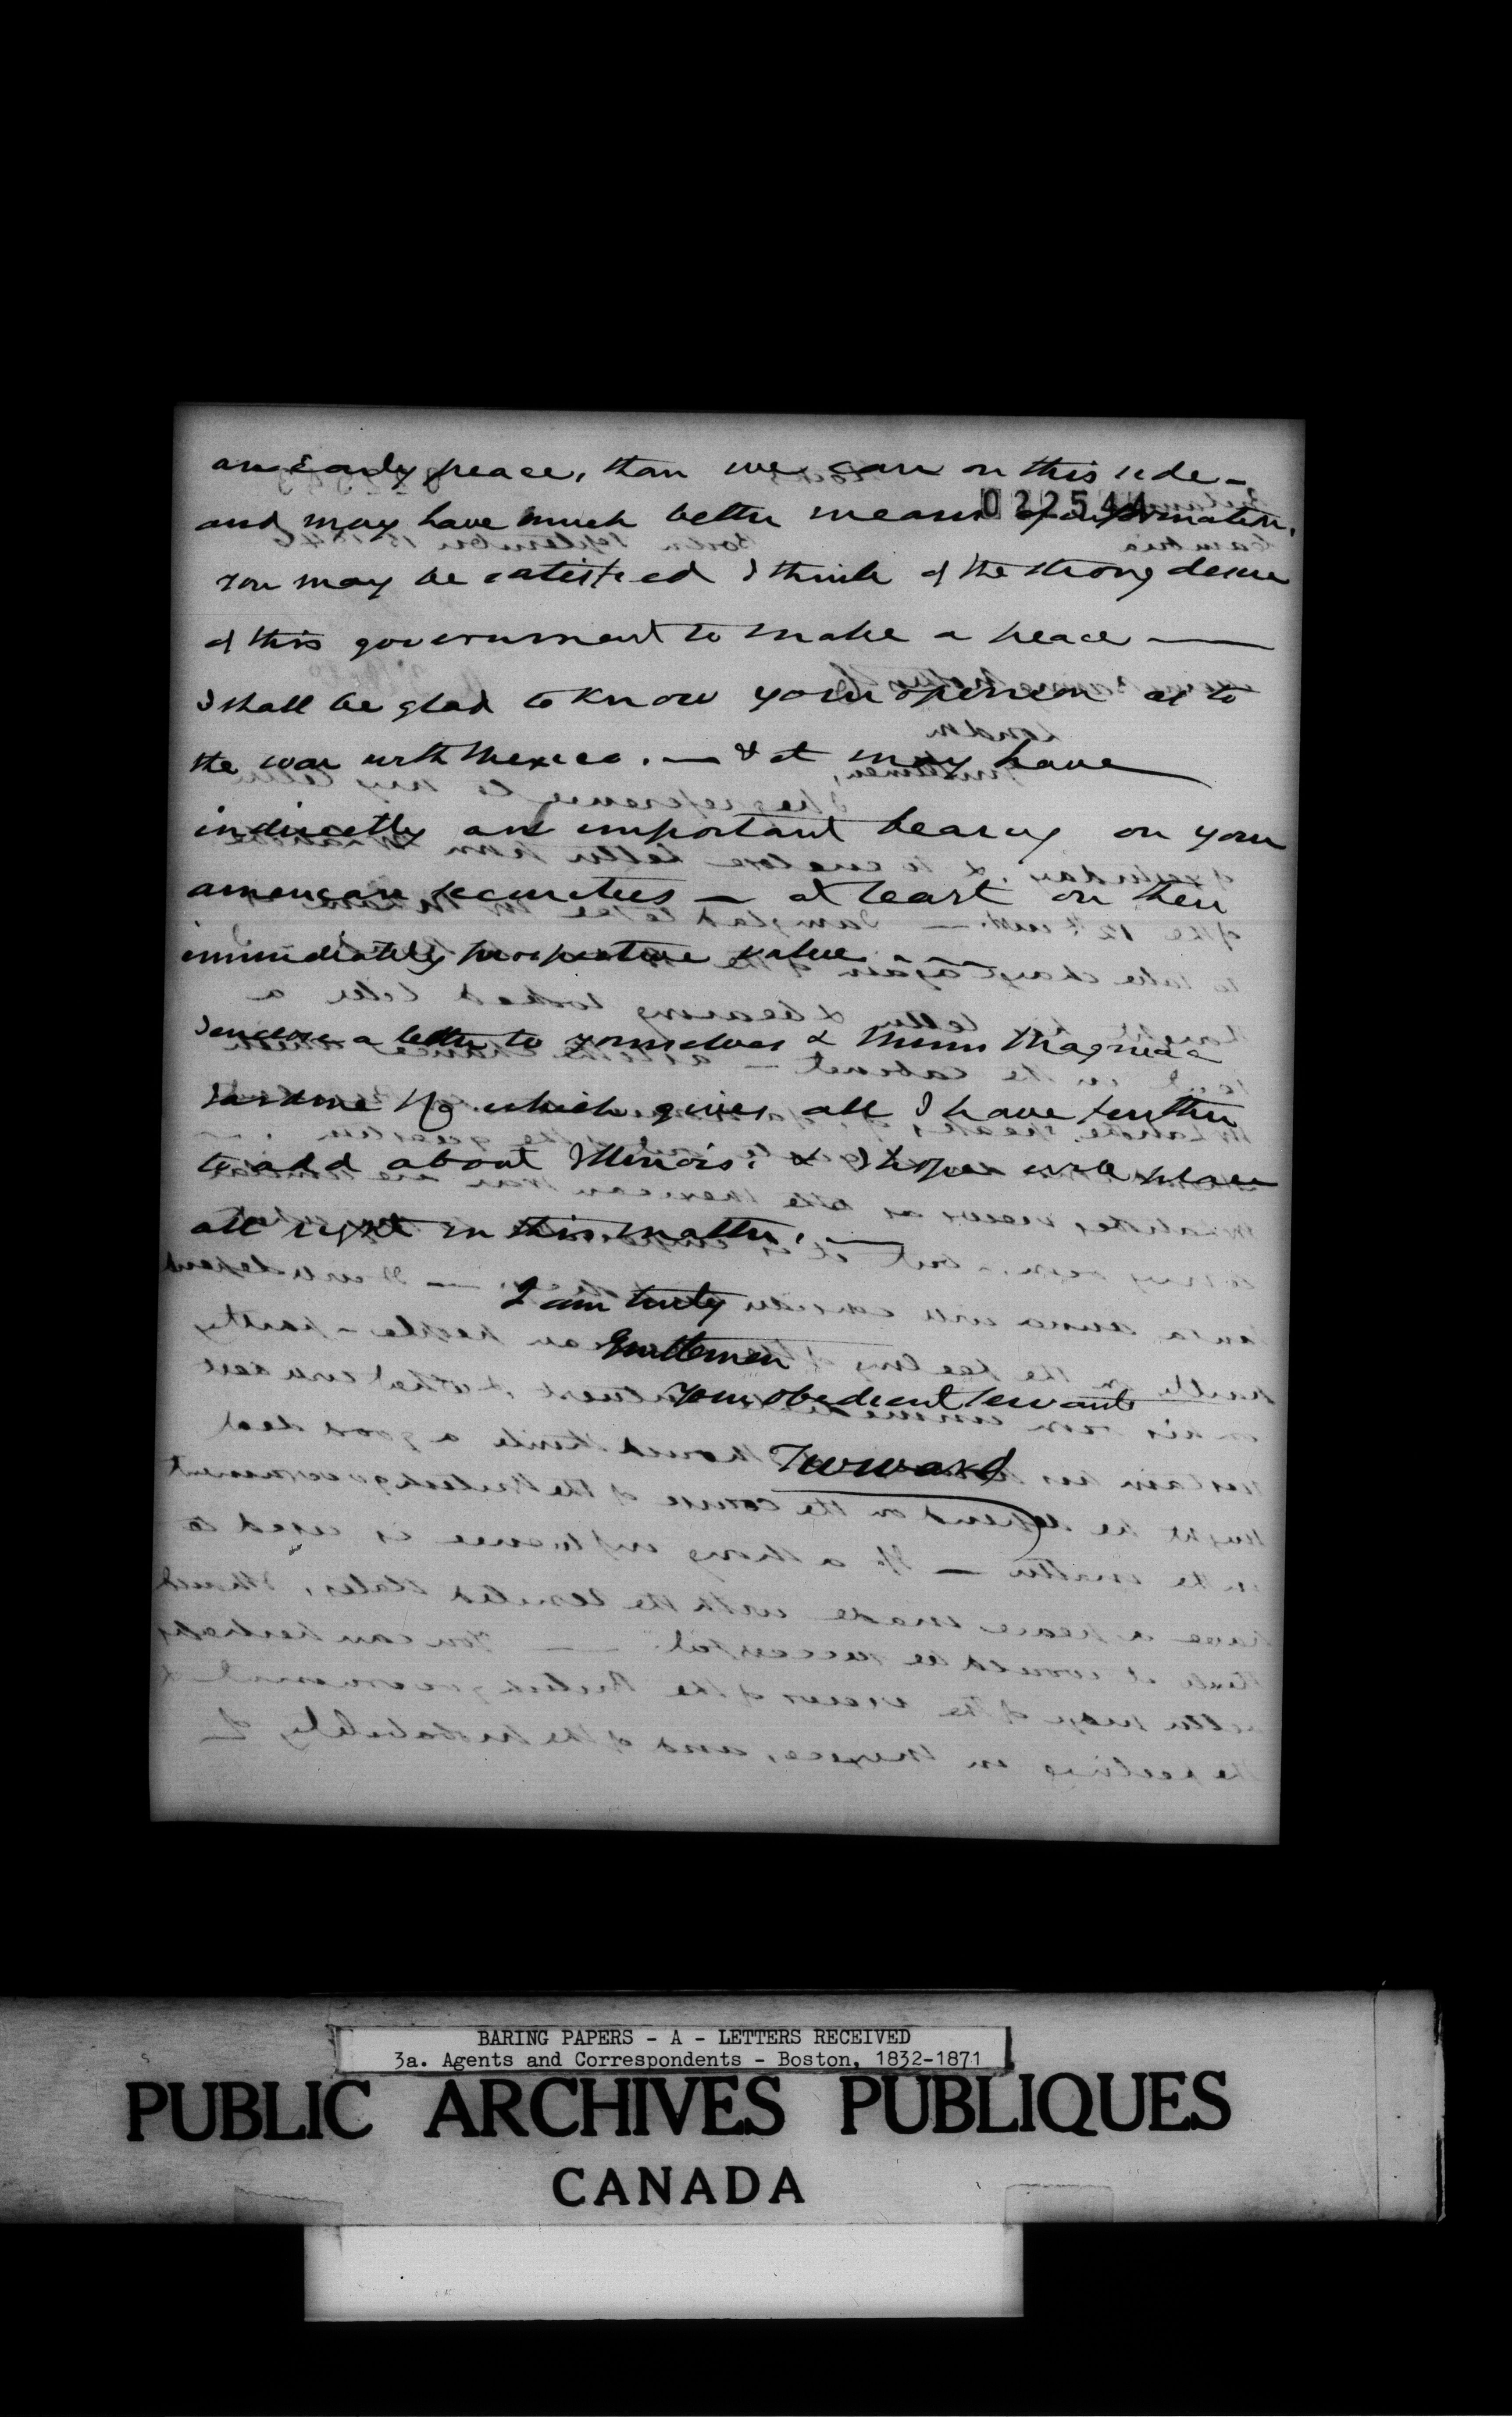 an early peace, than we can on this side -
022544
and may have much better means of information.
You may be satisfied I think of the strong desire
of this government to make a peace —
I shall be glad to know your opinion as to
the war with Mexico. — & it may have
indirectly an important bearing on your
american securities — at least on their
immediately prospective value.
I enclose a letter to yourselves & Messrs Magniac
Jardine & Co which gives all I have further
to add about Illinois. & I hope will place
all right in this matter. —
I am truly
Gentlemen
Your obedient servant
T W Ward
BARING PAPERS - A - LETTERS RECEIVED
3a. Agents and Correspondents - Boston, 1832-1871
PUBLIC ARCHIVES PUBLIQUES
CANADA